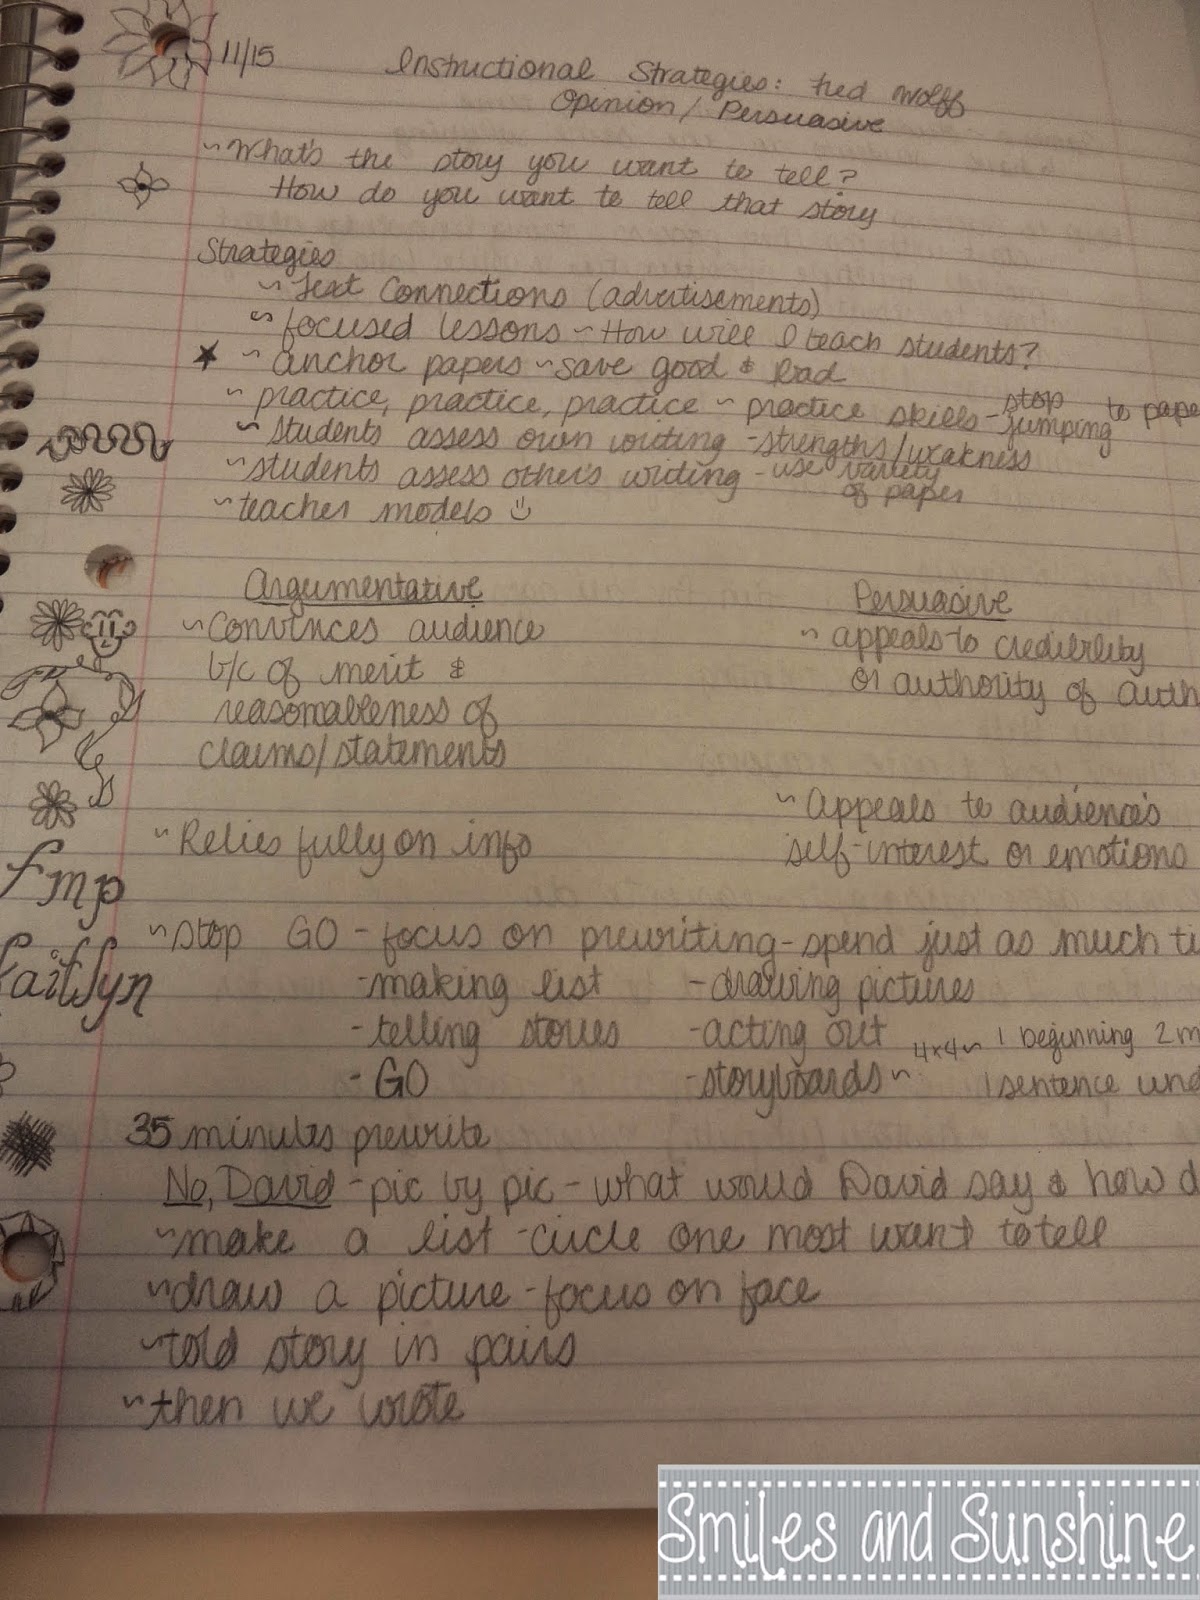 11/15
Instructional Strategies: Fred Wolff
Opinion / Persuasive
~What's the story you want to tell?
How do you want to tell that story
Strategies
~Text Connections (advertisements)
~focused lessons ~ How will I teach students?
★ ~ anchor papers ~ save good & bad
~ practice, practice, practice ~ practice skills - stop jumping to pape
~ students assess own writing - strengths/weakness
~ students assess others writing - use variety of paper
~ teacher models ☺
Argumentative
~ Convinces audience
b/c of merit &
reasonableness of
claims/statements
~ Relies fully on info
Persuasive
~ appeals to credibility
or authority of auth
~ Appeals to audience's
self-interest or emotions
fmp
Kaitlyn
~stop GO - focus on prewriting - spend just as much ti
-making list -drawing pictures
-telling stories -acting out
-GO -storyboards ~
4x4~ 1 beginning 2 m
1 sentence und
35 minutes prewrite
No, David - pic by pic - what would David say & how d
~make a list - circle one most want to tell
~draw a picture - focus on face
~told story in pairs
~then we wrote
Smiles and Sunshine